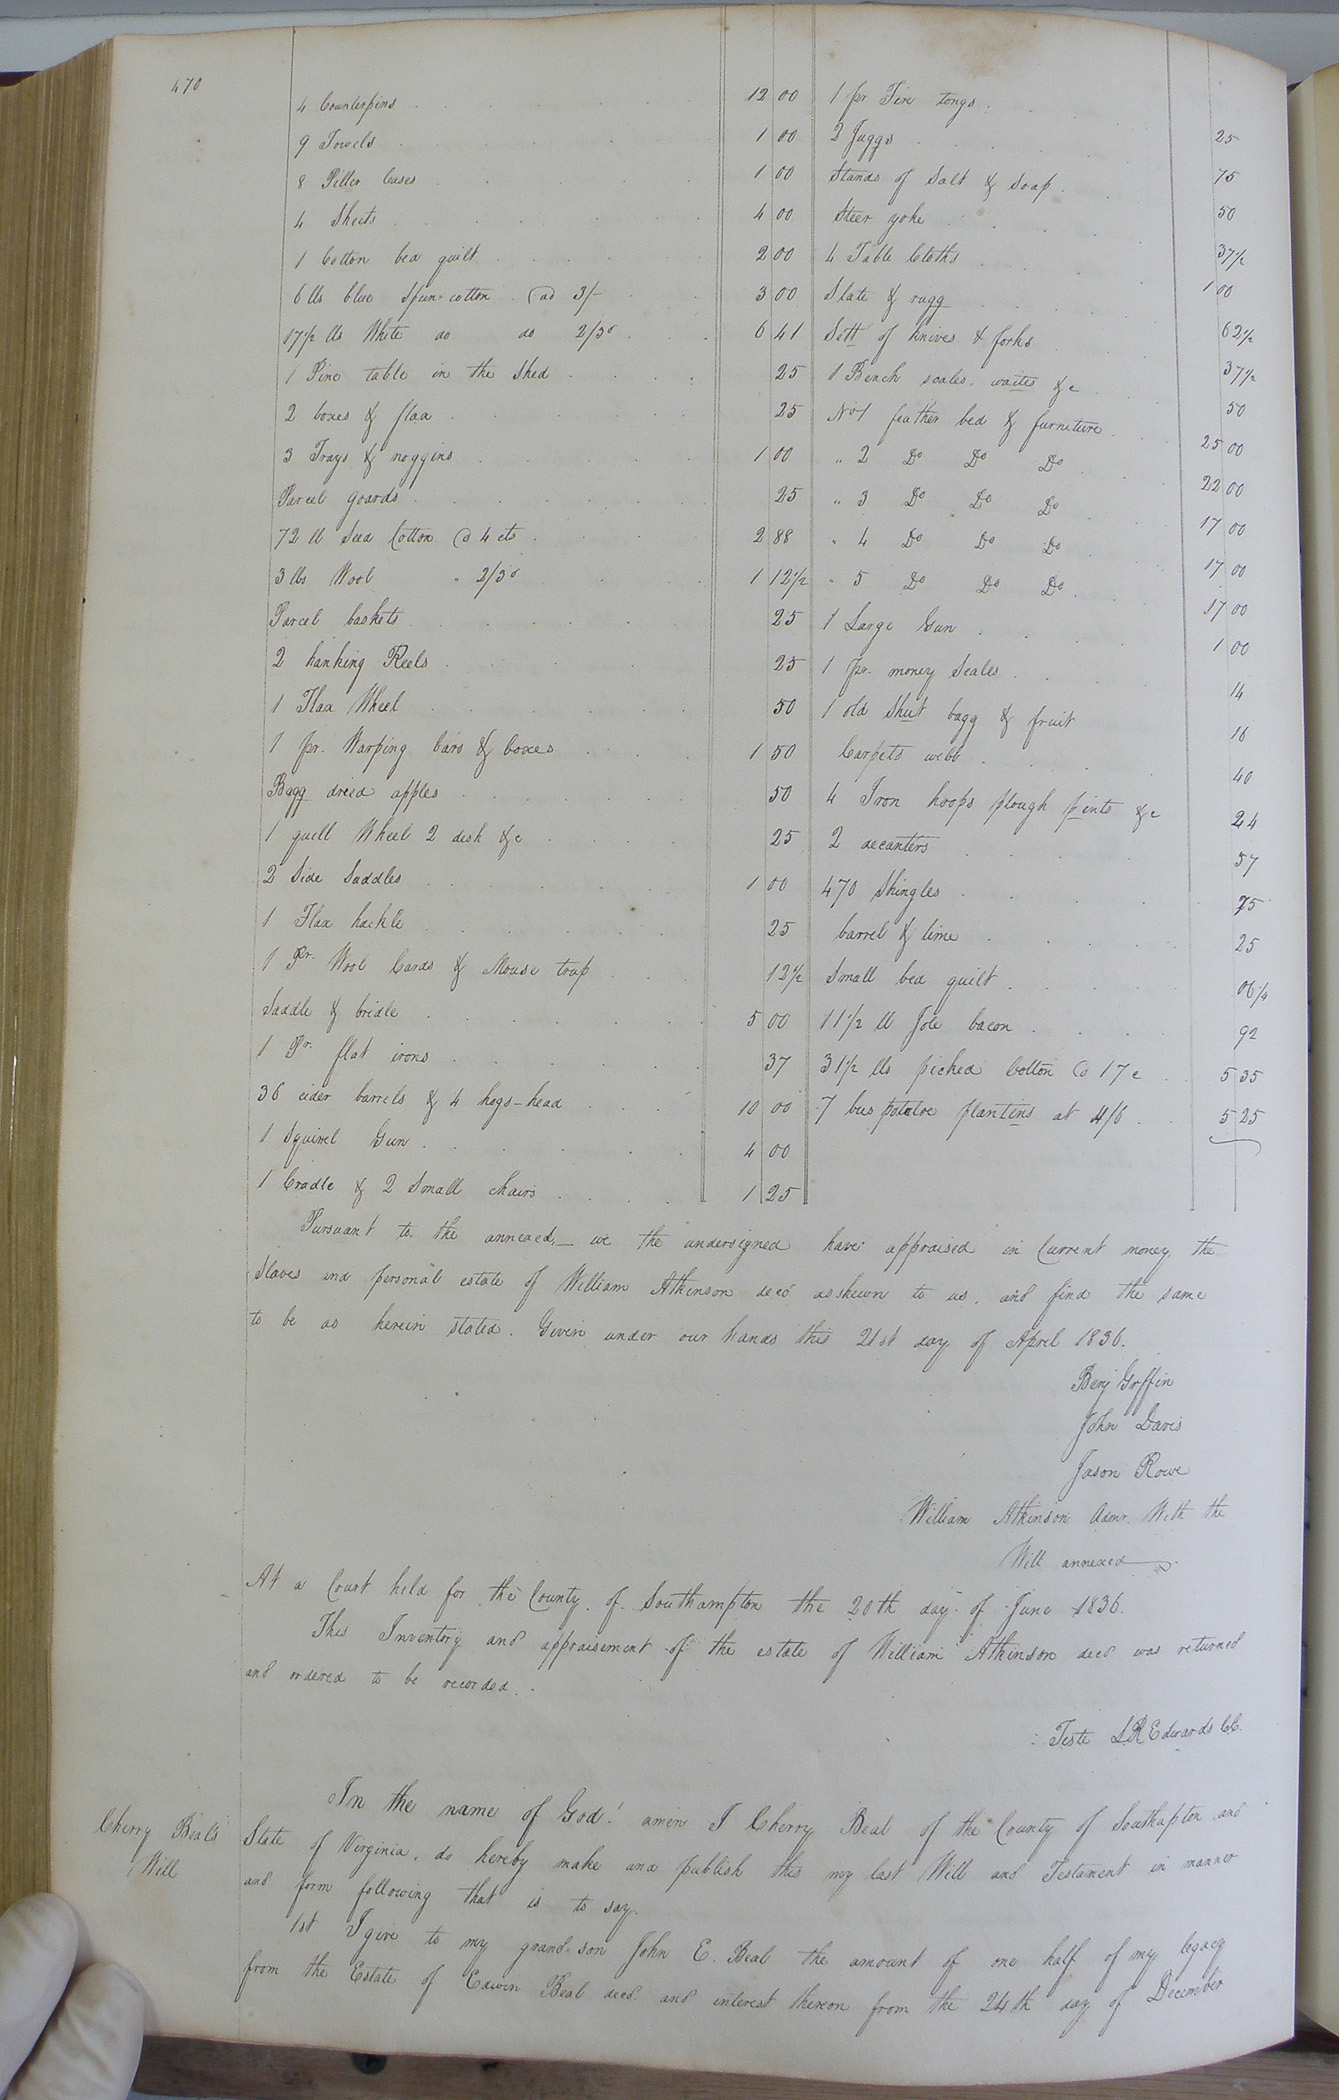 470
4 Counterpins 12 00
9 Towels 1 00
8 Piller Cases 1 00
4 Sheets 4 00
1 Cotton bed quilt 2 00
6 lbs blue Spun-cotton @ 3/- 3 00
17 1/2 lbs White do do 2/3d 6 41
1 Pine table in the Shed 25
2 boxes & flax 25
3 Trays & noggins 1 00
Parcel goards 25
72 lb Seed Cotton @ 4 cts 2 88
3 lbs Wool " 2/3d 1 12 1/2
Parcel baskets 25
2 hanking Reels 25
1 Flax Wheel 50
1 pr. Warping bars & boxes 1 50
Bagg dried apples 50
1 quill Wheel 2 desk &c 25
2 Side Saddles 1 00
1 Flax hackle 25
1 Pr. Wool Cards & Mouse trap 12 1/2
Saddle & bridle 5 00
1 Pr. flat irons 37
36 cider barrels & 4 hogs-head 10 00
1 Squirrel Gun 4 00
1 Cradle & 2 Small chairs 1 25
1 pr Fire tongs 25
2 Juggs 75
Stands of Salt & Soap 50
Steer yoke 37 1/2
4 Table Cloths 1 00
Slate & rugg 62 1/2
Sett of knives & forks 37 1/2
1 Bench scales. waites &c 50
No 1 feather bed & furniture 25 00
" 2 Do Do Do 22 00
" 3 Do Do Do 17 00
" 4 Do Do Do 17 00
" 5 Do Do Do 17 00
1 Large Gun 1 00
1 pr. money Scales 14
1 old Shut bagg & fruit 16
Carpets webb 40
4 Iron hoops plough pints &c 24
2 decanters 57
470 Shingles 75
barrel & lime 25
Small bed quilt 06 1/4
11 1/2 lb Jole bacon 92
31 1/2 lbs picked Cotton @ 17c 5 35
7 bus potatoe plantins at 4/6 5 25
Pursuant to the annexed,— we the undersigned have appraised in Current money the
Slaves and personal estate of William Atkinson decd as shewn to us, and find the same
to be as herein stated. Given under our hands this 21st day of April 1836.
Benj Griffin
John Davis
Jason Rowe
William Atkinson Admr. With the
Will annexed
At a Court held for the County of Southampton the 20th day of June 1836.
This Inventory and appraisement of the estate of William Atkinson decd was returned
and ordered to be recorded.
Teste L.R. Edwards C.C.
Cherry Beal's
Will
In the name of God! amen I Cherry Beal of the County of Southapton and
State of Virginia, do hereby make and publish this my last Will and Testament in manner
and form following that is to say.
1st I give to my grand-son John E. Beal the amount of one half of my legacy
from the Estate of Edwin Beal decd. and interest thereon from the 24th day of December